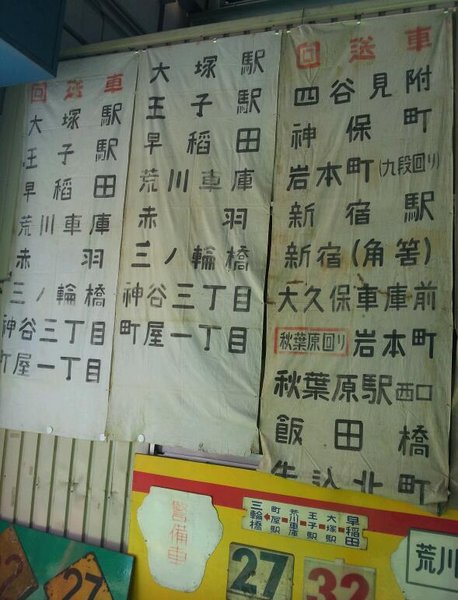 回送車
大塚駅
王子駅
早稲田
荒川車庫
赤羽
三ノ輪橋
神谷三丁目
町屋一丁目
大塚駅
王子駅
早稲田
荒川車庫
赤羽
三ノ輪橋
神谷三丁目
町屋一丁目
回送車
四谷見附
神保町
岩本町(九段回り)
新宿駅
新宿(角筈)
大久保車庫前
秋葉原回り 岩本町
秋葉原駅西口
飯田橋
牛込北町
警備車
三輪橋 町屋駅 荒川車庫 王子駅 大塚駅 早稲田
27
32
荒川
2
27